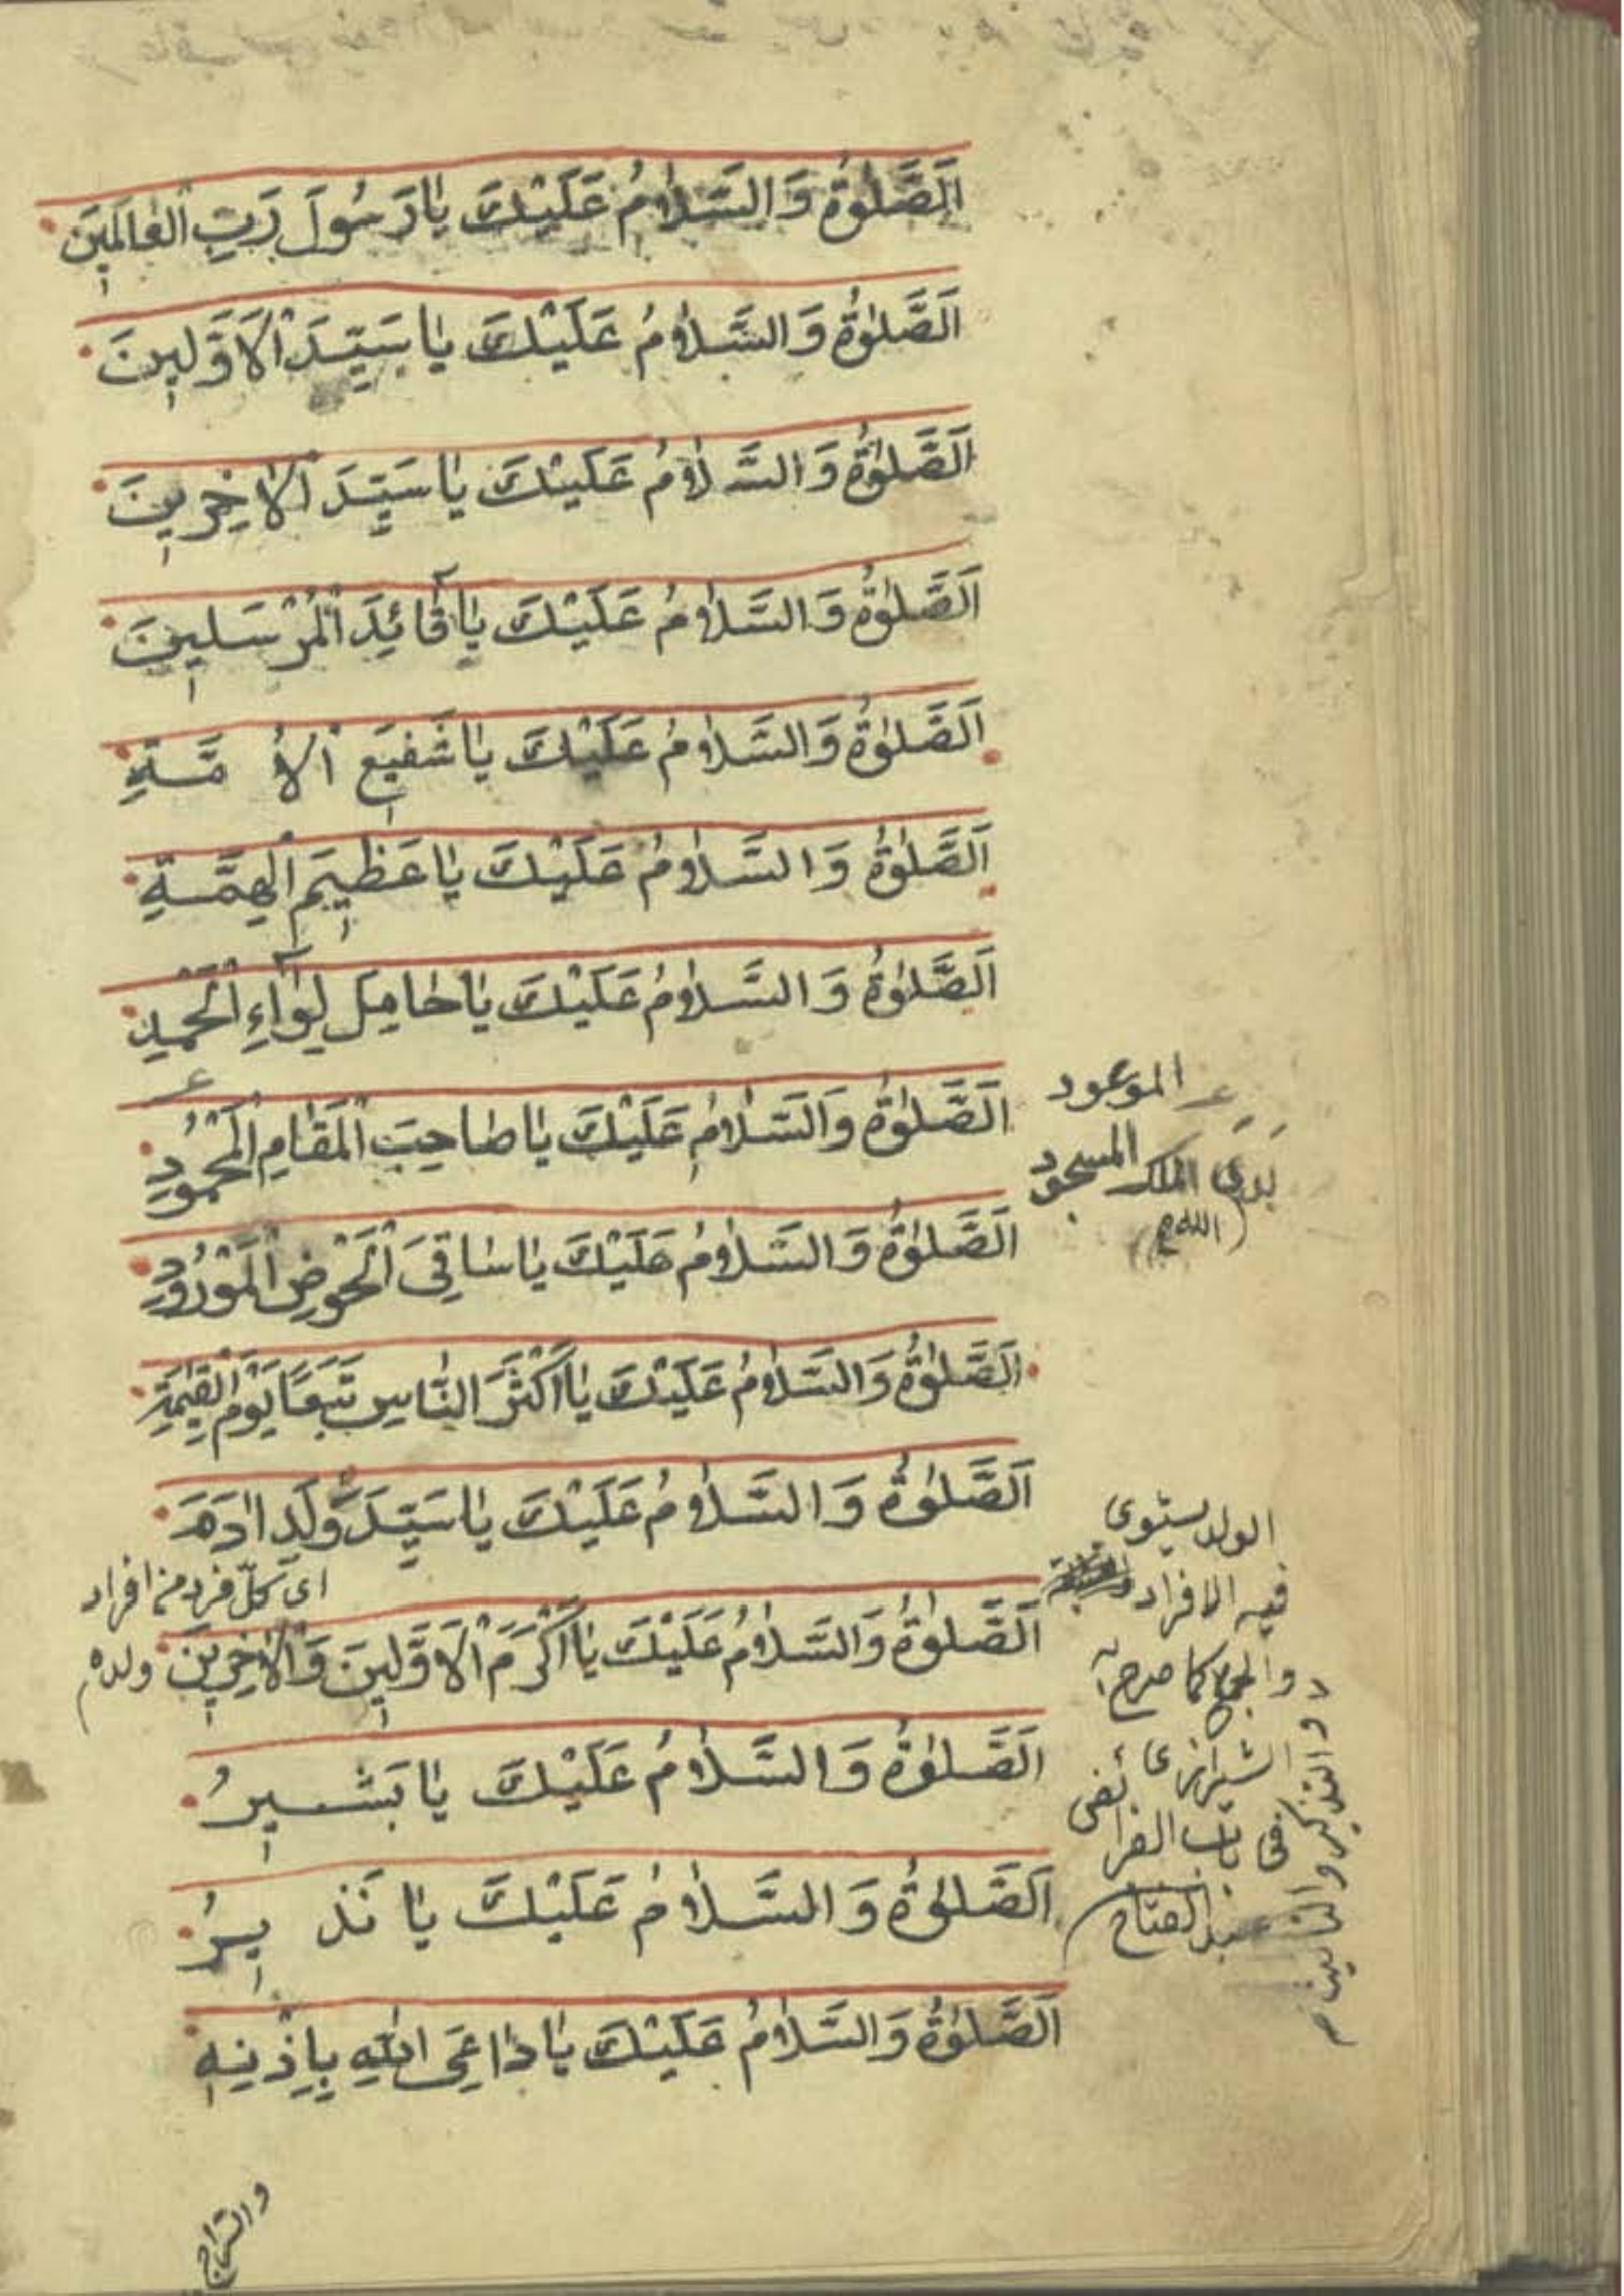 اَلصَّلٰوةُ وَالسَّلٰامُ عَلَيْكَ يٰا رَسُولَ رَبِّ الْعٰالَمِينَ
اَلصَّلٰوةُ وَالسَّلٰامُ عَلَيْكَ يٰا سَيِّدَ الْاَوَّلِينَ
اَلصَّلٰوةُ وَالسَّلٰامُ عَلَيْكَ يٰا سَيِّدَ الْاٰخِرِينَ
اَلصَّلٰوةُ وَالسَّلٰامُ عَلَيْكَ يٰا قٰٓائِدَ الْمُرْسَلِينَ
اَلصَّلٰوةُ وَالسَّلٰامُ عَلَيْكَ يٰا شَفِيعَ الْاُمَّةِ
اَلصَّلٰوةُ وَالسَّلٰامُ عَلَيْكَ يٰا عَظِيمَ الْهِمَّةِ
اَلصَّلٰوةُ وَالسَّلٰامُ عَلَيْكَ يٰا حٰامِلَ لِوٰٓاءِ الْحَمْدِ
اَلصَّلٰوةُ وَالسَّلٰامُ عَلَيْكَ يٰا صٰاحِبَ الْمَقٰامِ الْمَحْمُودِ
الموعود
بَدَىَ الملك المسجود
(اللهم)
اَلصَّلٰوةُ وَالسَّلٰامُ عَلَيْكَ يٰا سٰاقِىَ الْحَوْضِ الْمَوْرُودِ
اَلصَّلٰوةُ وَالسَّلٰامُ عَلَيْكَ يٰا اَكْثَرَ النّٰاسِ تَبَعًا يَوْمَ الْقِيٰمَةِ
اَلصَّلٰوةُ وَالسَّلٰامُ عَلَيْكَ يٰا سَيِّدَ وُلَدِ اٰدَمَ
اى كلّ فرد من افراد
ولده
اَلصَّلٰوةُ وَالسَّلٰامُ عَلَيْكَ يٰا اَكْرَمَ الْاَوَّلِينَ وَالْاٰخِرِينَ
الولد يستوى
فيه الافراد
والجمع كما صرح به
الشيرازى
فى باب الفرائض
عبد الفتاح
والتذكير والتانيث
اَلصَّلٰوةُ وَالسَّلٰامُ عَلَيْكَ يٰا بَشِيرُ
اَلصَّلٰوةُ وَالسَّلٰامُ عَلَيْكَ يٰا نَذِيرُ
اَلصَّلٰوةُ وَالسَّلٰامُ عَلَيْكَ يٰا دٰاعِىَ اللّٰهِ بِاِذْنِهِ
والسراج